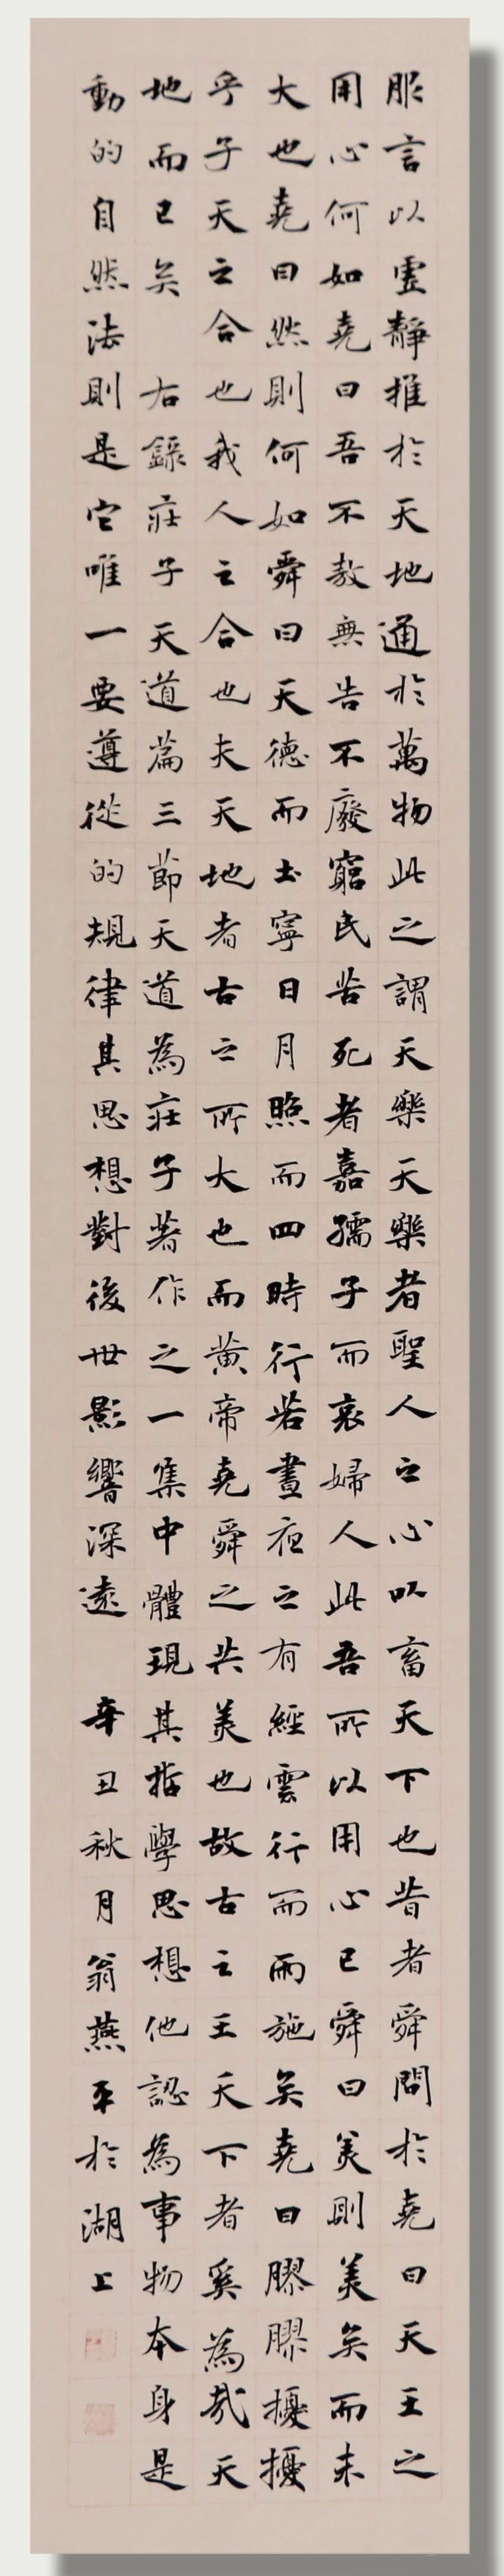 服言以虛靜推於天地通於萬物此之謂天樂天樂者聖人之心以畜天下也昔者舜問於堯曰天王之
用心何如堯曰吾不敖無告不廢窮民苦死者嘉孺子而哀婦人此吾所以用心已舜曰美則美矣而未
大也堯曰然則何如舜曰天德而土寧日月照而四時行若晝夜之有經雲行而雨施矣堯曰膠膠擾擾
乎子天之合也我人之合也夫天地者古之所大也而黃帝堯舜之共美也故古之王天下者奚為哉天
地而已矣 右錄莊子天道篇三節天道為莊子著作之一集中體現其哲學思想他認為事物本身是
動的自然法則是它唯一要遵從的規律其思想對後世影響深遠 辛丑秋月翁燕平於湖上